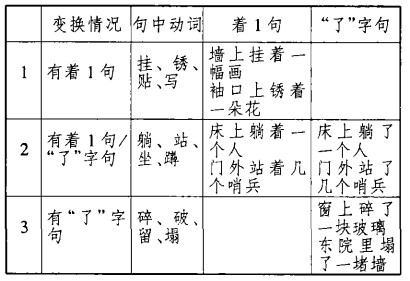 变换情况 句中动词 着1句 “了”字句
1 有着1句 挂、锈、贴、写 墙上挂着一幅画 袖口上锈着一朵花
2 有着1句/“了”字句 躺、站、坐、蹲 床上躺着一个人 门外站着几个哨兵 床上躺了一个人 门外站了几个哨兵
3 有“了”字句 碎、破、留、塌 窗上碎了一块玻璃 东院里塌了一堵墙